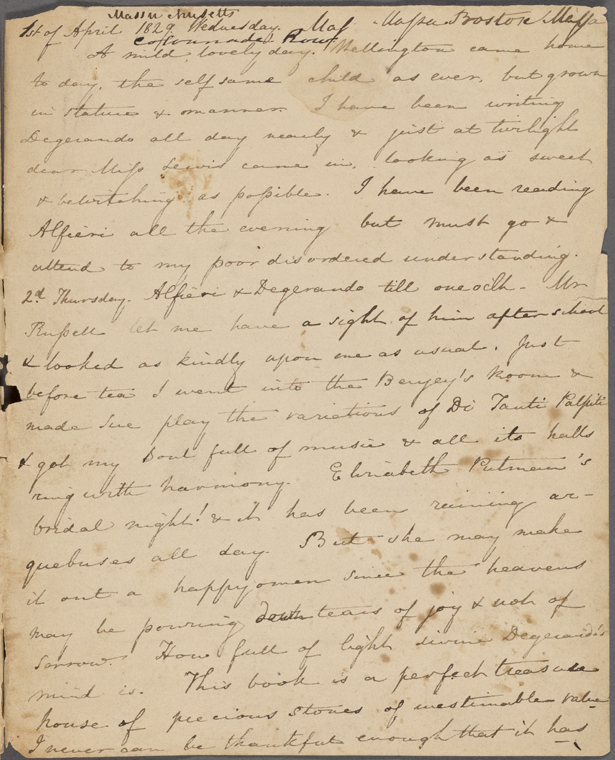 Massachusetts
1st of April 1829. Wednesday. Mas Massa Boston Massa
Colonnade Row
A mild lovely day. Wellington came home
to day, the selfsame child as ever, but grown
in stature & manner. I have been writing
Degerando all day nearly & just at twilight
dear Miss Lewis came in, looking as sweet
& bewitching as possible. I have been reading
Alfieri all the evening but must go &
attend to my poor disordered understanding.
2d Thursday. Alfieri & Degerando till one oclk - Mr
Russell let me have a sight of him after school
& looked as kindly upon me as usual. Just
before tea I went into the Benjey's Room &
made Sue play the variations of Di Tanti Palpiti
& got my Soul full of music & all its halls
rung with harmony. Elizabeth Putnam's
bridal night! & it has been raining ar-
quebuses all day. But she may make
it out a happy omen since the heavens
may be pouring down tears of joy & not of
Sorrow. How full of light divine Degerando's
mind is. This book is a perfect treasure
house of precious stones of inestimable value
I never can be thankful enough that it has